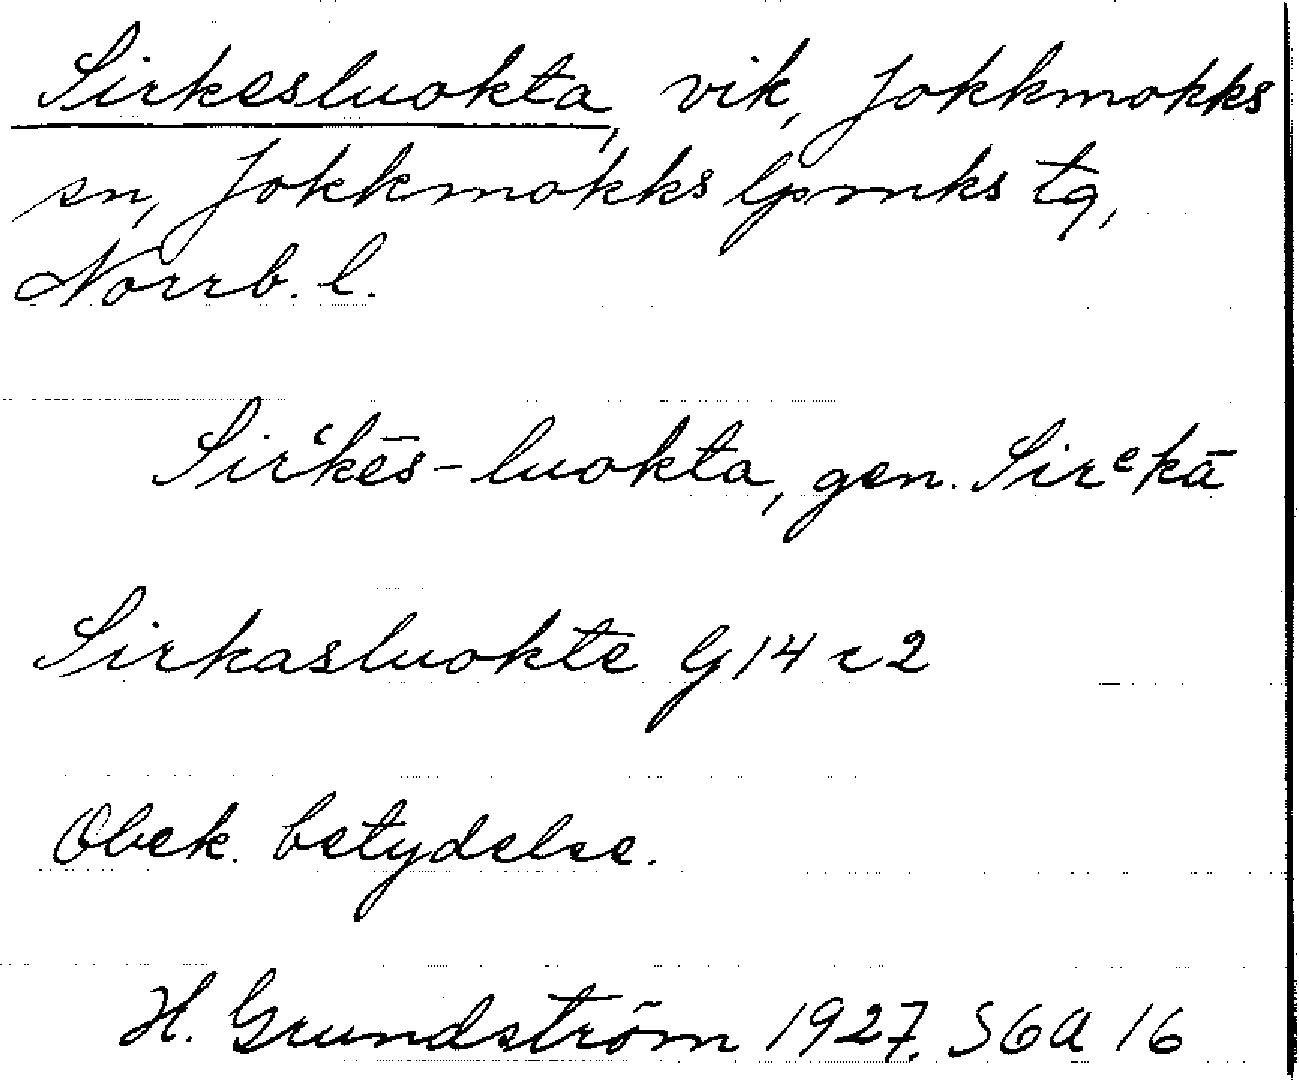 Sirkesluokta, vik, Jokkmokks
sn, Jokkmokks lpmks tg,
Norrb. l.
Sirʿkēs-luokta, gen. Sirᵉkā
Sirkasluokte G 14 c 2
Obek. betydelse.
H. Grundström 1927. S6A 16